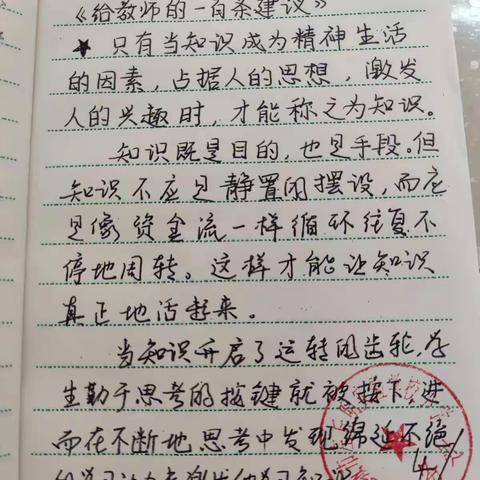 《给教师的一百条建议》
★ 只有当知识成为精神生活
的因素，占据人的思想，激发
人的兴趣时，才能称之为知识。
知识既是目的，也是手段。但
知识不应是静置的摆设，而应
是像资金流一样循环往复不
停地周转。这样才能让知识
真正地活起来。
当知识开启了运转的齿轮，学
生勤于思考的按键就被按下，进
而在不断地思考中发现绵延不绝
的学习动力